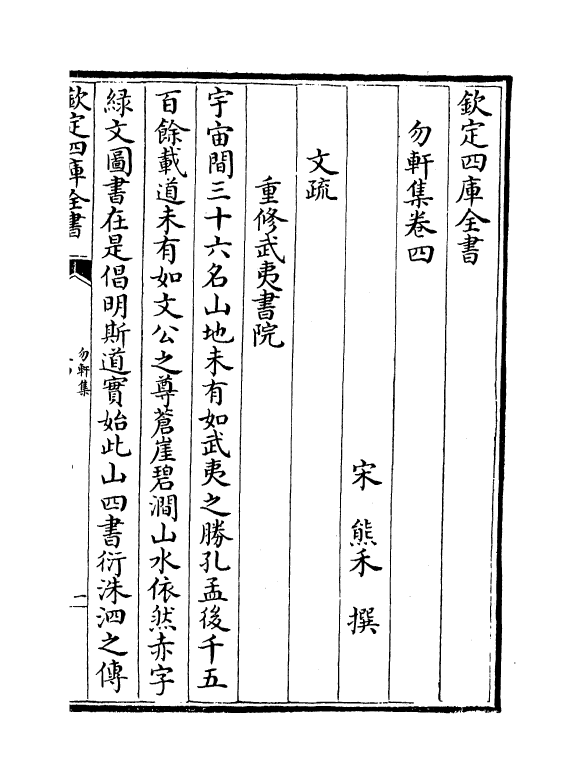 欽定四庫全書
勿軒集卷四
宋 熊禾 撰
文疏
重修武夷書院
宇宙間三十六名山地未有如武夷之勝孔孟後千五
百餘載道未有如文公之尊蒼崖碧澗山水依然赤字
緑文圖書在是倡明斯道實始此山四書衍洙泗之傳
欽定四庫全書
勿軒集